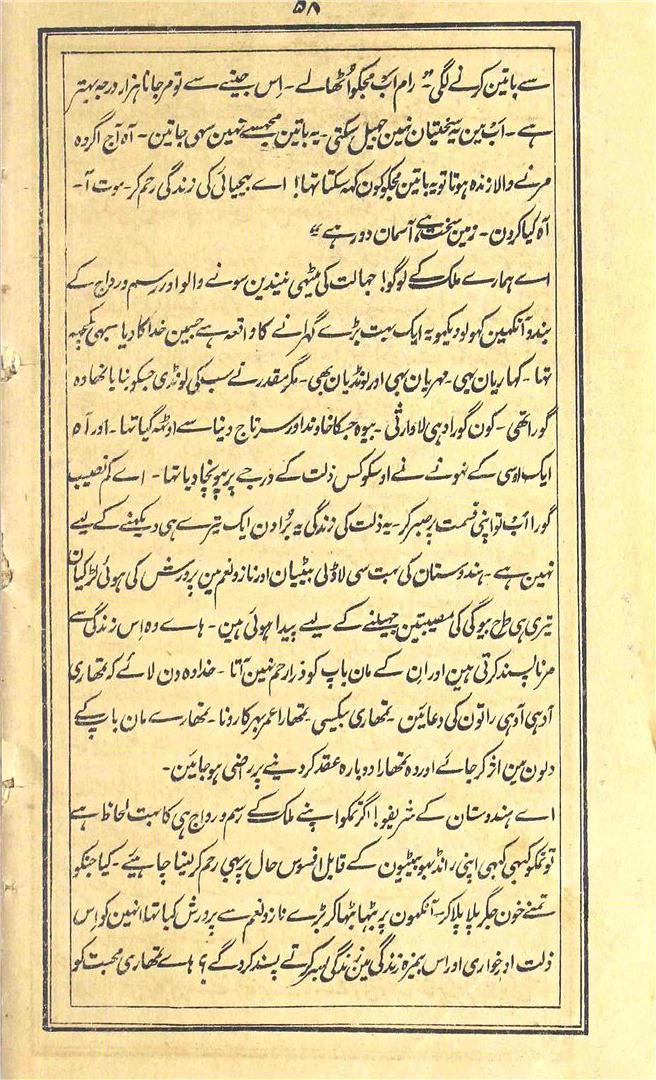 ۵۸
سے باتین کرنے لگی" رام اب مجکو اُٹھا لے ۔ اِس جینے سے تو مر جانا ہزار درجہ بہتر
ہے ۔ اب مین یہ سختیان نہین جھیل سکتی ۔ یہ باتین مجھسے نہین سہی جاتین ۔ آہ آج اگر وہ
مرنے والا زندہ ہوتا تو یہ باتین مجکو کون کہہ سکتا تہا! اے بیحیائی کی زندگی رحم کر ۔ موت آ ۔
آہ کیا کرون ۔ زمین سخت ہے آسمان دور ہے"
اے ہمارے ملک کے لوگو! جہالت کی میٹھی نیندین سونے والو اور رسم و رواج کے
بندو آنکھین کھولو دیکھو یہ ایک بہت بڑے گھرانے کا واقعہ ہے جسمین خدا کا دیا سبھی کچھہ
تھا ۔ کہاریان بھی ۔ مہریان بھی اور لونڈیان بھی ۔ مگر مقدر نے سب کی لونڈی جسکو بنایا تھا وہ
گورا تھی ۔ کون گورا وہی لاوارثی ۔ بیوہ جسکا خاوند اور سرتاج دنیا سے اوٹھہ گیا تہا ۔ اور آہ
ایک اوسی کے نہونے نے اوسکو کس ذلت کے درجے پر پہونچا دیا تہا ۔ اے کم نصیب
گورا اب تو اپنی قسمت پر صبر کر ۔ یہ ذلت کی زندگی یہ بُرا دن ایک تیرے ہی دیکھنے کے لیے
نہین ہے ۔ ہندوستان کی بہت سی لاڈلی بیٹیان اور ناز و نعم مین پرورش کی ہوئی لڑکیان
تیری ہی طرح بیوگی کی مصیبتین جھیلنے کے لیے پیدا ہوئی ہین ۔ ہاے وہ اِس زندگی سے
مرنا پسند کرتی ہین اور اِن کے مان باپ کو ذرا رحم نہین آتا ۔ خدا وہ دن لائے کہ تمھاری
آدہی آدہی راتون کی دعائین تمھاری بیکسی تمھارا عمر بہر کا رونا ۔ تمھارے مان باپ کے
دلون مین اثر کر جائے اور وہ تمھارا دوبارہ عقد کر دینے پر راضی ہو جائین ۔
اے ہندوستان کے شریفو! اگر تمکو اپنے ملک کے رسم و رواج ہی کا بہت لحاظ ہے
تو تمکو کبھی کبھی اپنی رانڈ بہو بیٹیون کے قابل افسوس حال پر بھی رحم کر لینا چاہیے ۔ کیا جنکو
تمنے خون جگر پلا پلا کر ۔ آنکھون پر بٹھا بٹھا کر بڑے ناز و نعم سے پرورش کیا تہا انہین کو اِس
ذلت اور خواری اور اس بیمزہ زندگی مین زندگی بسر کرتے پسند کرو گے؟ ہاے تمھاری محبت کو